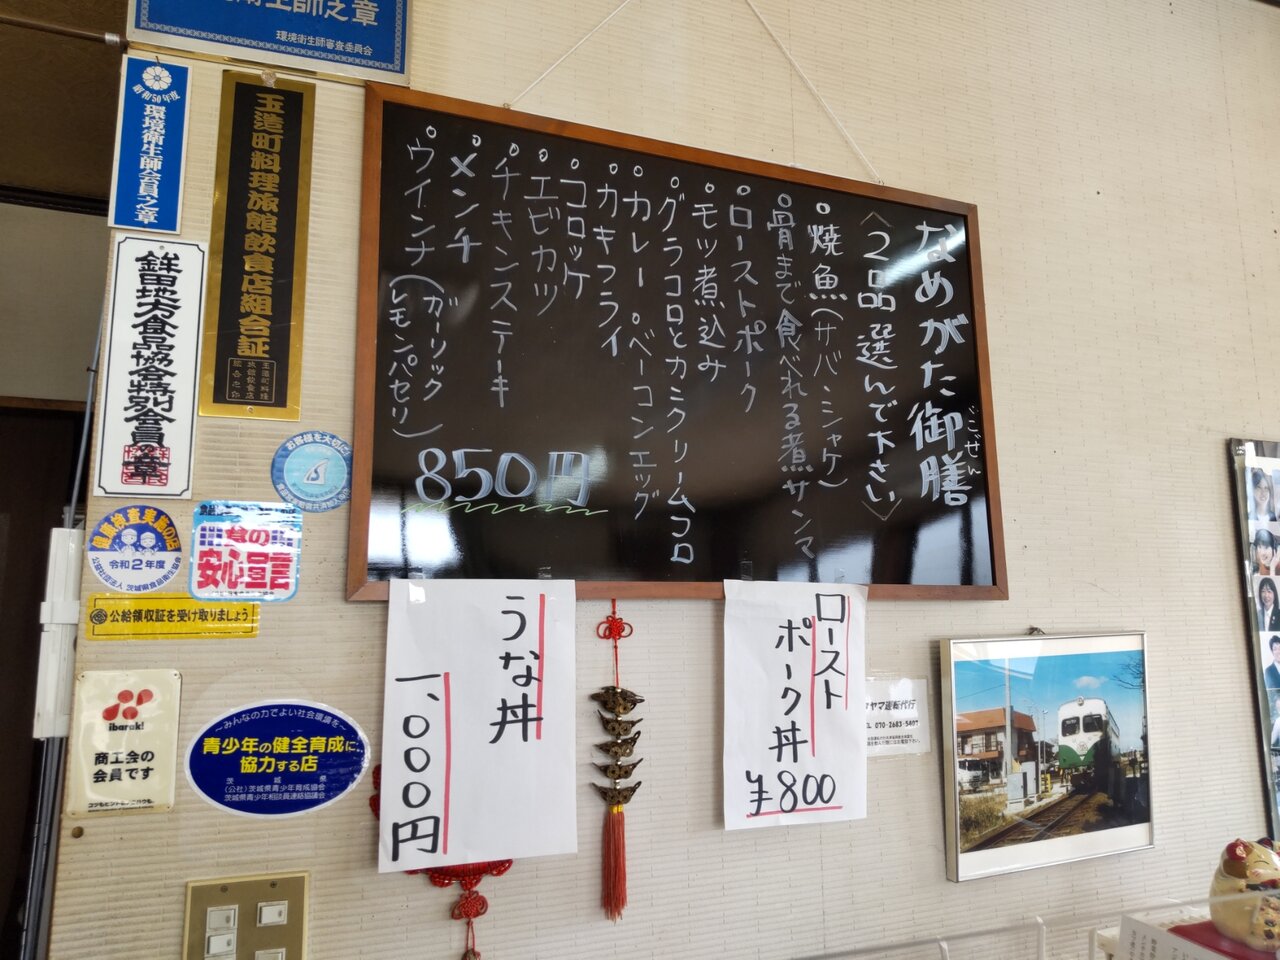 衛生師之章
環境衛生師審査委員会
昭和50年度
環境衛生師会員之章
玉造町料理旅館飲食店組合証
鉾田地方食品協会特別会員之章
お客様を大切に
検査実施の店
令和2年度
公益社団法人 茨城県食品衛生協会
食の
安心宣言
公給領収証を受け取りましょう
ibaraki
商工会の
会員です
～みんなの力でよい社会環境を～
青少年の健全育成に
協力する店
茨城県
(公社)茨城県青少年育成協会
茨城県青少年相談員連絡協議会
なめがた御膳
ごぜん
〈2品選んで下さい〉
焼魚(サバ・シャケ)
骨まで食べれる煮サンマ
ローストポーク
モツ煮込み
グラコロとカニクリームコロ
カレー
ベーコンエッグ
カキフライ
コロッケ
エビカツ
チキンステーキ
メンチ
ウインナ(ガーリック
レモンパセリ)
850円
うな丼
一、000円
ロースト
ポーク丼
¥800
ヤマ運転代行
TEL 070-2683-5407